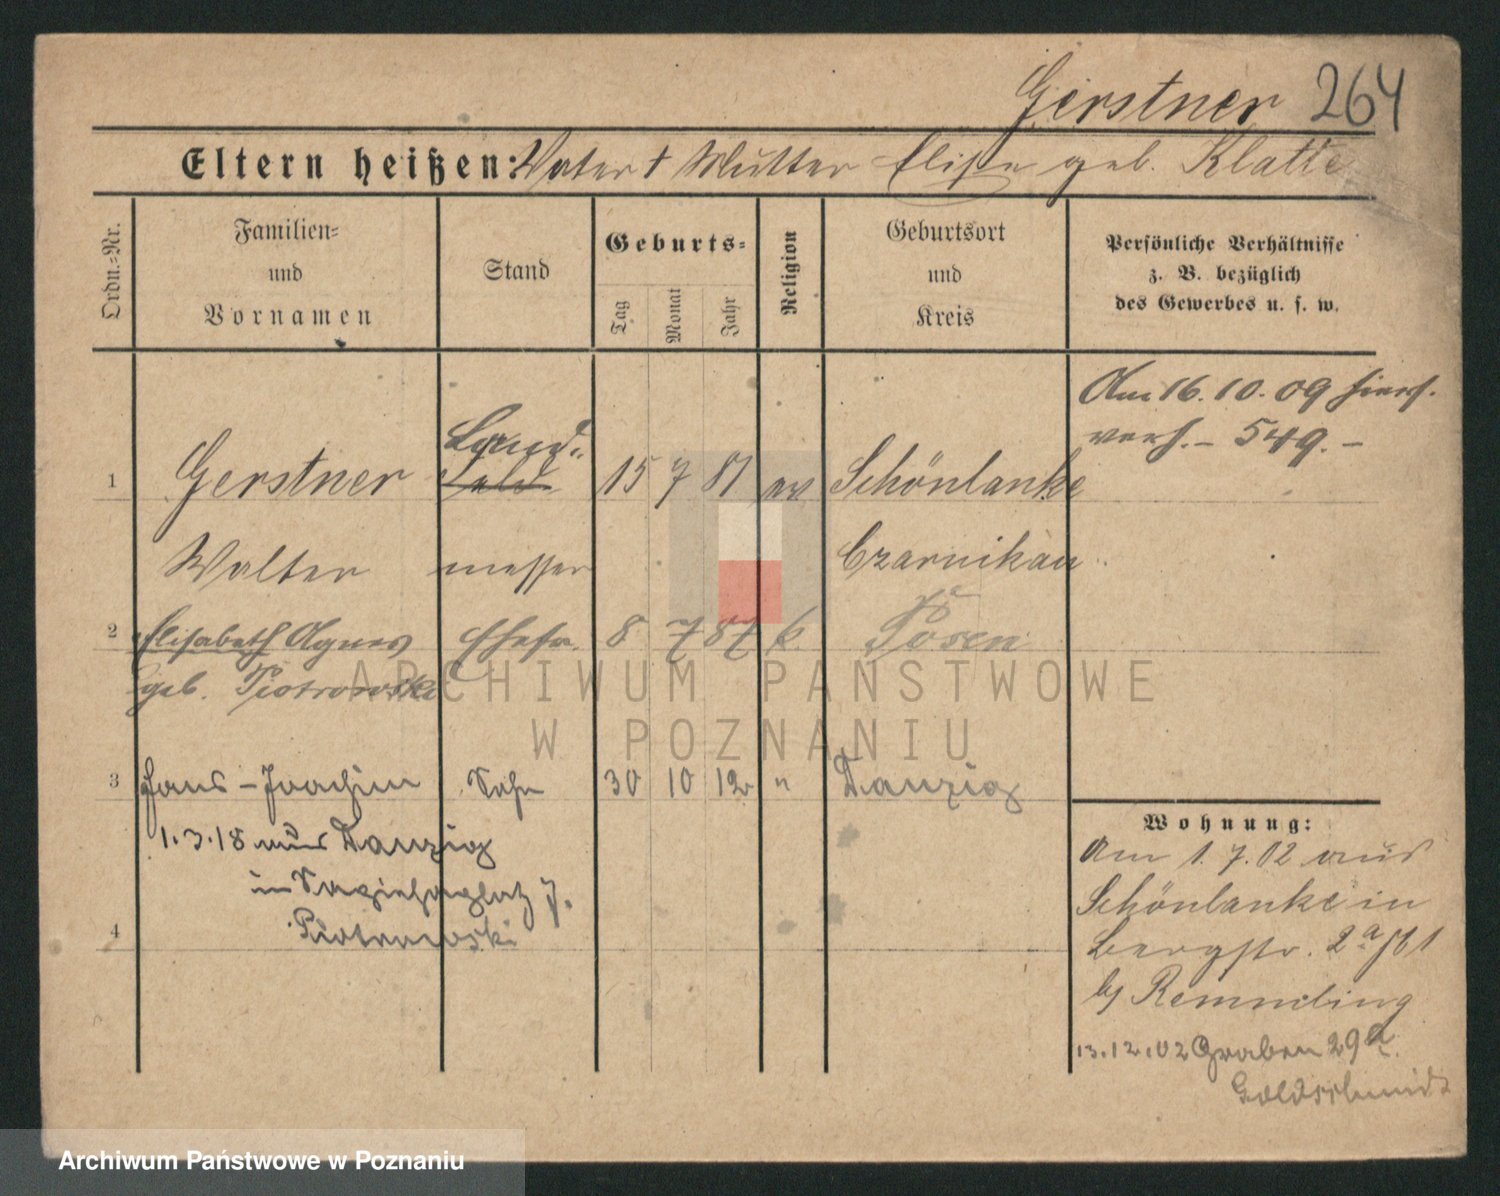 Gerstner 264
Eltern heißen: Vater † Mutter Elise geb. Klatte
Ordn.-Nr.
Familien-
und
Vornamen
Stand
Geburts-
Tag
Monat
Jahr
Religion
Geburtsort
und
Kreis
Persönliche Verhältnisse
z. B. bezüglich
des Gewerbes u. s. w.
Am 16.10.09 hiers.
verh. – 549. –
1 Gerstner Land- Feld 15 7 81 ev Schönlanke
Walter messer Czarnikau
2 Elisabeth Agnes Ehefr. 8 7 87 k. Posen
geb. Piotrowski
3 Hans-Joachim Sohn 30 10 12 " Danzig
1.3.18 aus Danzig
in Sapiehaplatz 7.
4 Piotrowski
Wohnung:
Am 1.7.02 aus
Schönlanke in
Bergstr. 2a
b/ Remmling
13.12.02 Graben 29a.
Goldschmidt
ARCHIWUM PAŃSTWOWE
W POZNANIU
Archiwum Państwowe w Poznaniu